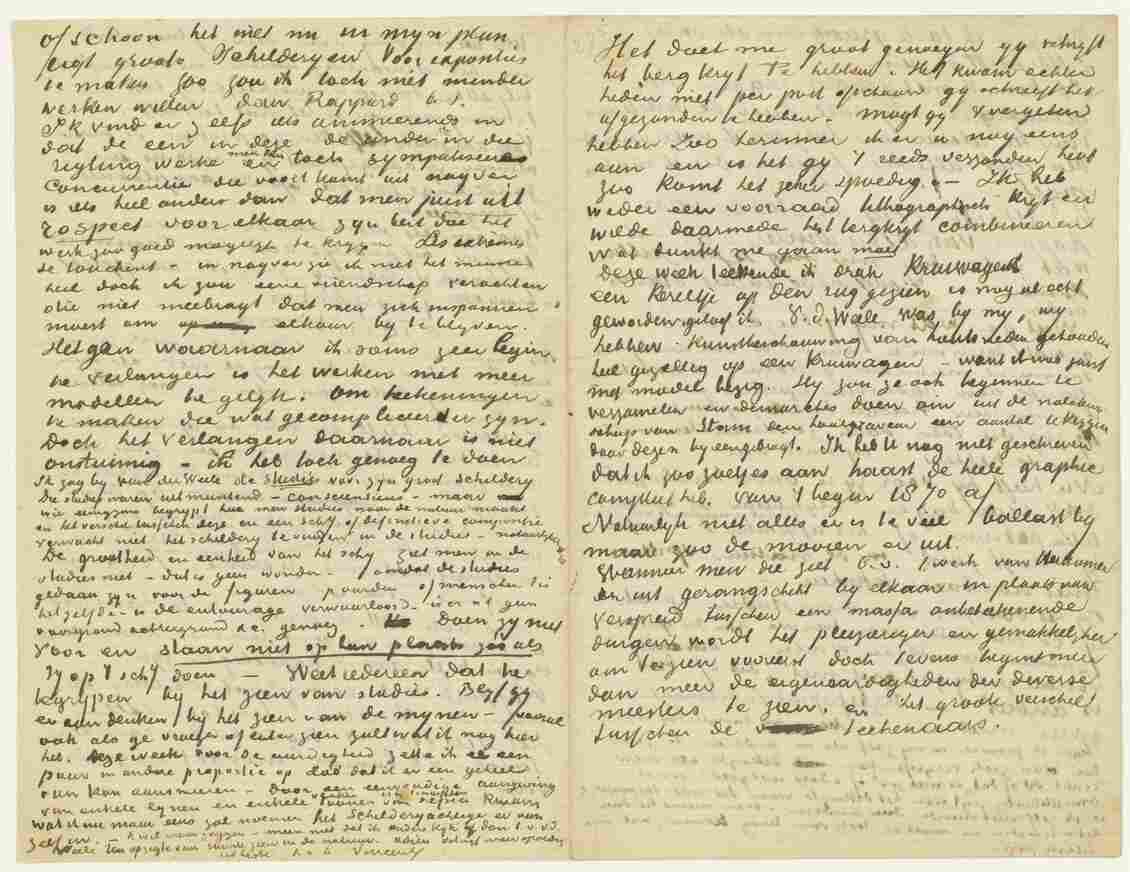 ofschoon het niet nu in myn plan
ligt groote Schilderyen voor exposities
te maken zoo zou ik toch niet minder
werken willen dan Rappard b.v.
Ik vind er zelfs iets animeerends in
dat de een in deze de ander in die
rigting werke men dan toch sympatiseere
Concurrentie die voort komt uit nayver
is iets heel anders dan dat men juist uit
respect voor elkaar zyn best doe het
werk zoo goed mogelyk te krygen Les extremes
se touchent – in nayver zie ik niet het minste
heil doch ik zou eene vriendschap verachten
die niet meebragt dat men zich inspannen
moest om elkaar by te blyven.
Hetgeen waarnaar ik soms zeer begin
te verlangen is het werken met meer
modellen te gelyk. Om teekeningen
te maken die wat gecompliceerder zyn.
Doch het verlangen daarnaar is niet
onstuimig – ik heb toch genoeg te doen
Ik zag by van der Weele de studies voor zyn groot schildery
Die studies waren uitmuntend – consciencieus – maar
wie eenigzins begrypt hoe men studies naar de natuur maakt
en het verschil tusschen deze en een schy of definitieve compositie
verwacht niet het schildery te vinden in de studies – natuurlyk
De grootheid en eenheid van het schy ziet men in de
studies niet – dat is geen wonder – omdat de studies
gedaan zyn voor de figuren paarden of menschen
het zelfde – is de entourage verwaarloosd – is er geen
voorgrond achtergrond &c. genoeg. doen zy niet
voor en staan niet op hun plaats zoo als
zy op 't schy doen – Weet iedereen dat te
begrypen by het zien van studies. Blyf gy
er aan denken by het zien van de mynen – vooral
ook als ge vroeger of later zien zult wat ik nog hier
heb. Deze week voor de aardigheid zette ik er een
paar in andere proportie op zoo dat ik er een geheel
van kan aansmeren – door een eenvoudige aanwyzing
van enkele lynen en enkele toonen van repria kwam
wat ik nu maar eens zal noemen het Schilderyachtige er van
zelf in.
Vincent
Het doet me groot genoegen gy schryft
het bergkryt te hebben. Het kwam echter
heden niet per post ofschoon gy schreeft het
afgezonden te hebben. Mogt gy 't vergeten
hebben Zoo herinner ik er u nog eens
aan en is het gy 't reeds verzonden hebt
zoo komt het zeker spoedig. – Ik heb
weder een voorraad lithographisch kryt en
wilde daarmede het bergkryt combineeren
Wat dunkt me gaan moet
Deze week teekende ik drah Kruiwagens
een kereltje op den rug gezien is nog al echt
geworden geloof ik V.d. Weele was by my, wy
hebben Kunstbeschouwing van houtsneden gehouden
heel gezellig op een Kruiwagen – want ik was juist
met model bezig. Hy zou ze ook beginnen te
verzamelen en demarches doen om uit de nalaten
schap van Stam den houtgraveur een aantal te krygen
door dezen byeengebragt. Ik heb U nog niet geschreven
dat ik zoo zoetjes aan haast de heele graphic
compleet heb. van 't begin 1870 af
Natuurlyk niet alles er is te veel ballast by
maar zoo de mooien er uit.
Wanneer men die ziet b.v. 't werk van Herkomer
en uit gerangschikt by elkaar in plaats van
verspreid tusschen een massa onbeteekenende
dingen wordt het pleizieriger en gemakkelyker
om te zien vooreerst doch tevens begint men
dan meer de eigenaardigheden der diverse
meesters te zien. en 't groote verschil
tusschen de teekenaars.